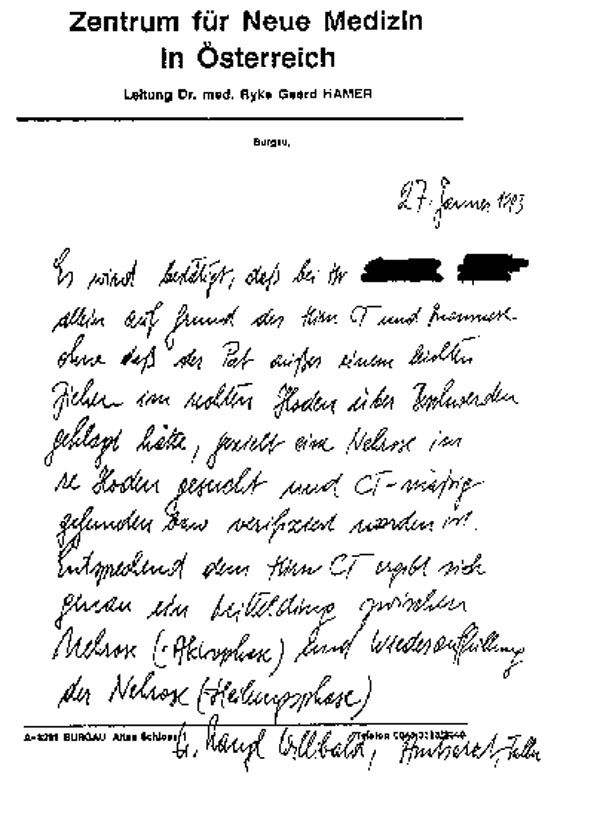 Zentrum für Neue Medizin
in Österreich
Leitung Dr. med. Ryke Geerd HAMER
Burgau,
27. Jänner 1993
Es wird bestätigt, daß bei Hr
allein auf Grund des Hirn CT und Anamnese
ohne daß der Pat außer einem leichten
Ziehen im rechten Hoden über Beschwerden
geklagt hätte, gezielt eine Nekrose im
re Hoden gesucht und CT-mäßig
gefunden bzw verifiziert worden ist.
Entsprechend dem Hirn CT ergibt sich
genau ein zwischen
Nekrose (-Aktivphase) und Wiederauffüllung
der Nekrose (-Heilungsphase)
A-8291 BURGAU Altes Schloss 1 Telefon
Dr. Willibald, Amtsarzt,